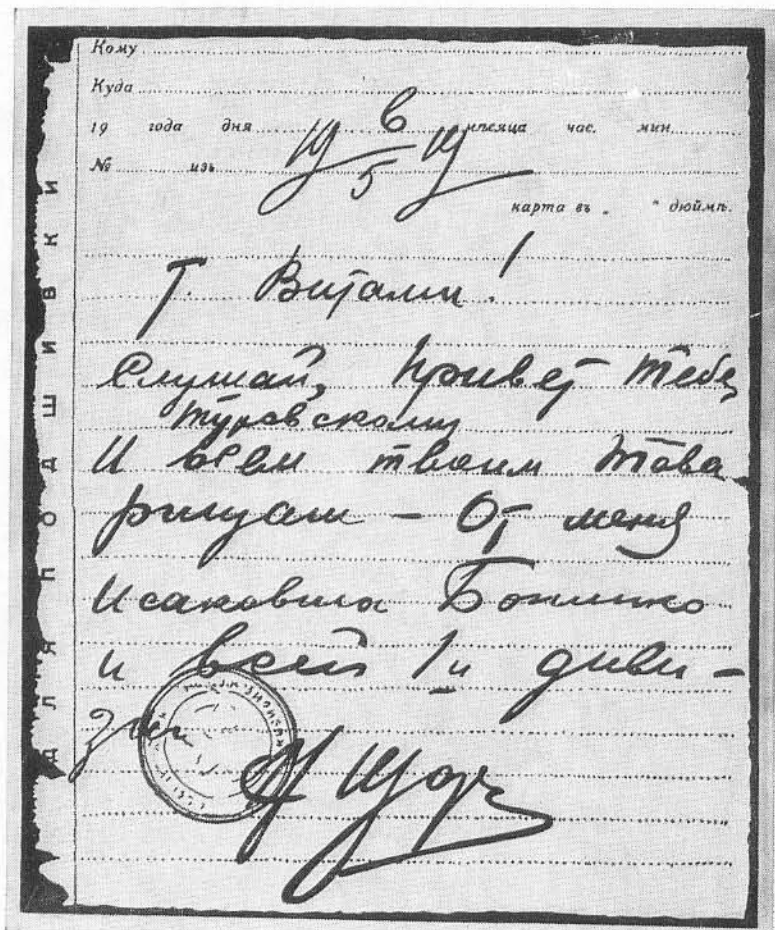 Кому
Куда
19 года дня мѣсяца час. мин.
№ изъ
6
5
карта въ „ “ дюймѣ.
Т. Виталий!
Слушай, Привет тебе,
Туровскому
И всем твоим това
рищам – От меня
Исаковича Боженко
и всей 1й диви-
зии
Н Щорс
ДЛЯ ПОДШИВКИ